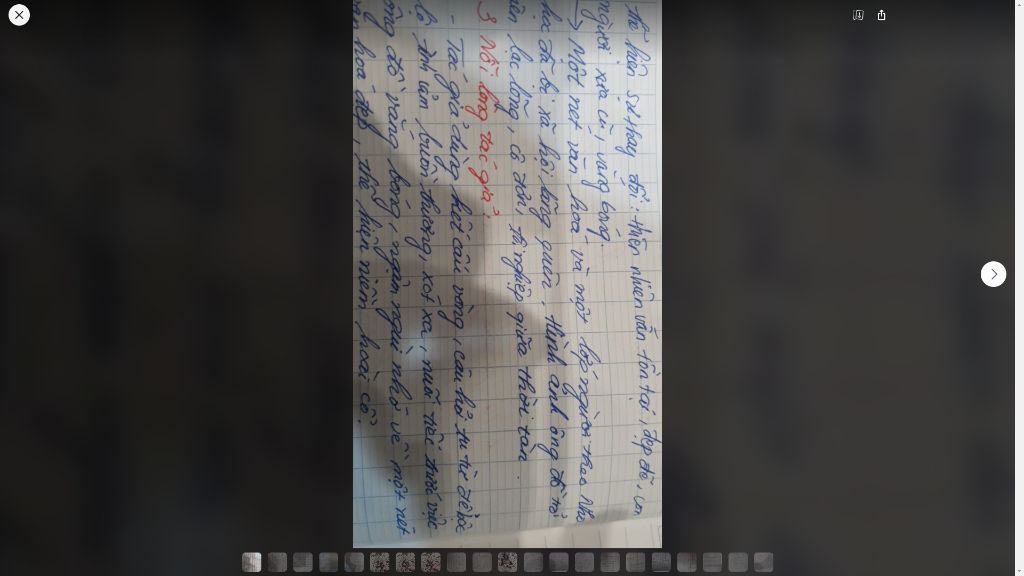 thể hiện sự thay đổi: thiên nhiên vẫn tồn tại, đẹp đẽ, con
người xưa cũ, vắng bóng.
→ Một nét văn hoá và một lớp người theo Nho
học đã bị xã hội lãng quên. Hình ảnh ông đồ trở
nên lạc lõng, cô đơn, tội nghiệp giữa thời tàn.
3. Nỗi lòng tác giả:
- Tác giả dùng kiểu câu vòng, câu hỏi tu từ để bộc
lộ tình cảm buồn thương, xót xa, nuối tiếc trước việc
ông đồ vắng bóng, ngậm ngùi nhớ về một nét
văn hoá đẹp, thể hiện niềm hoài cổ.